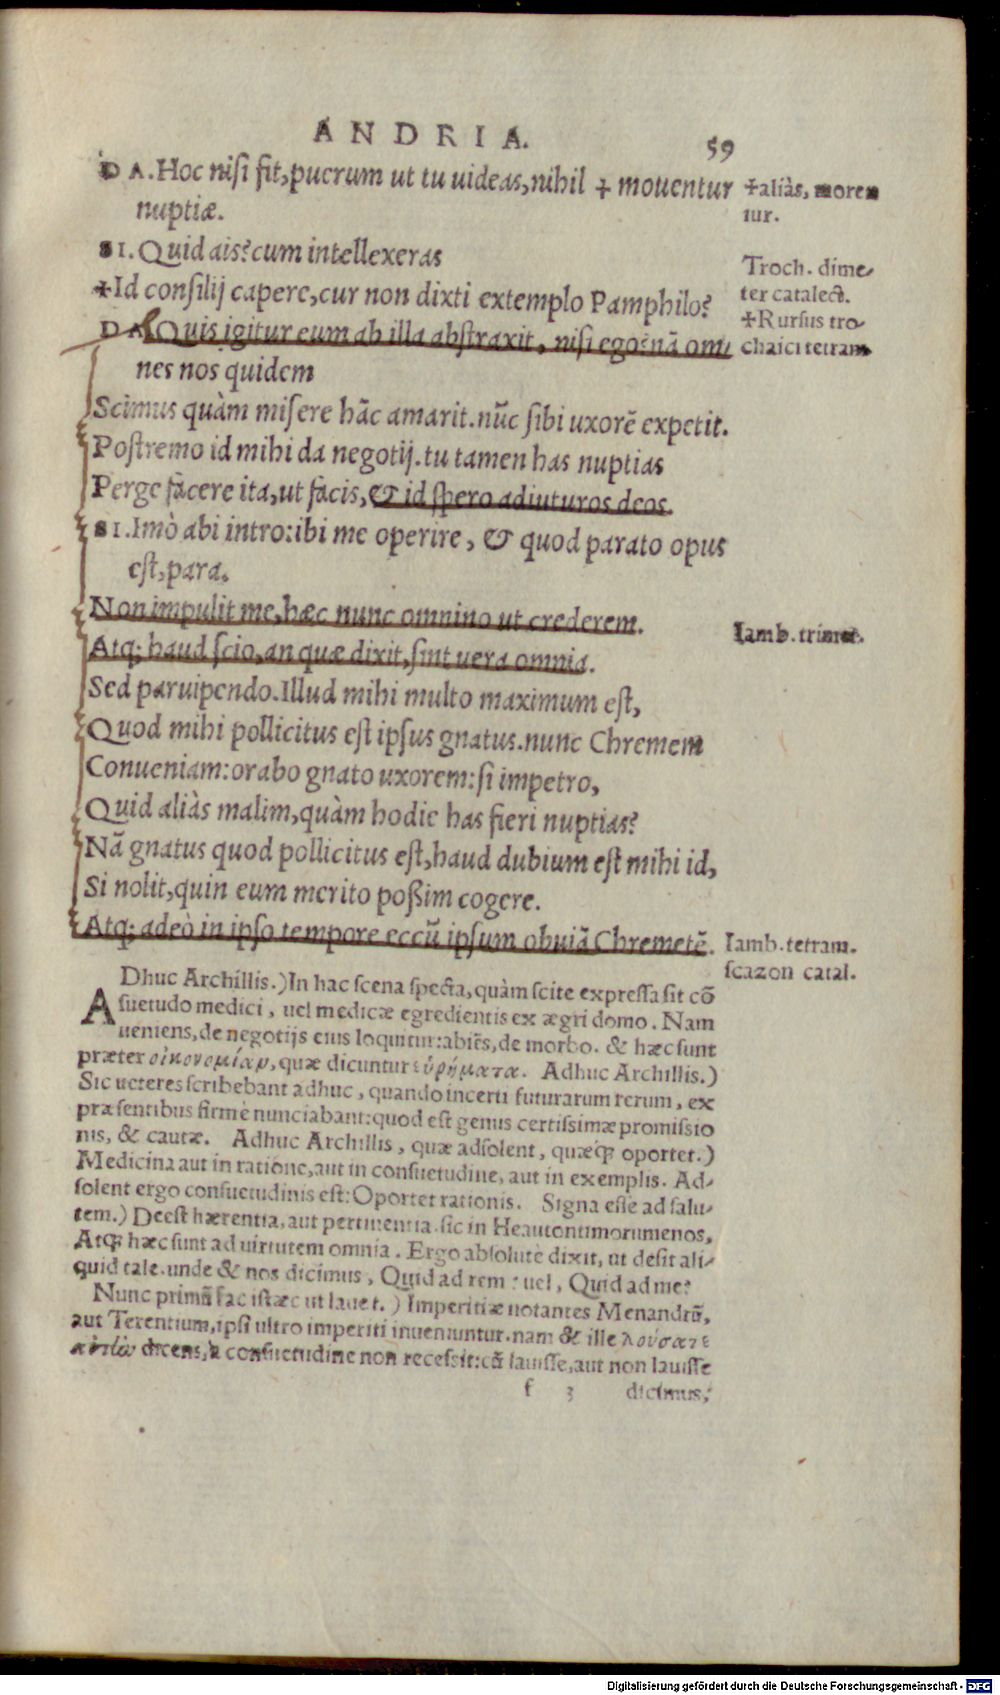 ANDRIA. 59
DA. Hoc nisi fit, puerum ut tu uideas, nihil ✢ mouentur
nuptiæ.
SI. Quid ais? cum intellexeras
✢Id consilij capere, cur non dixti extemplo Pamphilo?
DA. Quis igitur eum ab illa abstraxit, nisi ego? nã om-
nes nos quidem
Scimus quàm misere hãc amarit. nũc sibi uxorẽ expetit.
Postremo id mihi da negotij. tu tamen has nuptias
Perge facere ita, ut facis, & id spero adiuturos deos.
SI. Imò abi intro: ibi me operire, & quod parato opus
est, para.
Non impulit me, hæc nunc omnino ut crederem.
Atq; haud scio, an quæ dixit, sint uera omnia.
Sed paruipendo. Illud mihi multo maximum est,
Quod mihi pollicitus est ipsus gnatus. nunc Chremem
Conueniam: orabo gnato uxorem: si impetro,
Quid aliàs malim, quàm hodie has fieri nuptias?
Nã gnatus quod pollicitus est, haud dubium est mihi id,
Si nolit, quin eum merito poßim cogere.
Atq; adeò in ipso tempore eccũ ipsum obuiã Chremetẽ.
✢aliàs, moren
tur.
Troch. dime-
ter catalect.
✢Rursus tro-
chaici tetram
Iamb. trimet.
Iamb. tetram.
scazon catal.
ADhuc Archillis.) In hac scena specta, quàm scite expressa sit cõ
suetudo medici, uel medicæ egredientis ex ægri domo. Nam
ueniens, de negotijs eius loquitur: abiẽs, de morbo. & hæc sunt
præter οἰκονομίαν, quæ dicuntur εὑρήματα. Adhuc Archillis.)
Sic ueteres scribebant adhuc, quando incerti futurarum rerum, ex
præsentibus firmè nunciabant: quod est genus certissimæ promissio
nis, & cautæ. Adhuc Archillis, quæ adsolent, quæq; oportet.)
Medicina aut in ratione, aut in consuetudine, aut in exemplis. Ad-
solent ergo consuetudinis est: Oportet rationis. Signa esse ad salu-
tem.) Deest hærentia, aut pertinentia. sic in Heautontimorumenos,
Atq; hæc sunt ad uirtutem omnia. Ergo absolutè dixit, ut desit ali-
quid tale. unde & nos dicimus, Quid ad rem? uel, Quid ad me?
Nunc primũ fac istæc ut lauet.) Imperitiæ notantes Menandrũ,
aut Terentium, ipsi ultro imperiti inueniuntur. nam & ille λούσατε
αὐτὴν dicens, à consuetudine non recessit: cũ lauisse, aut non lauisse
f 3 dicimus,
Digitalisierung gefördert durch die Deutsche Forschungsgemeinschaft - DFG